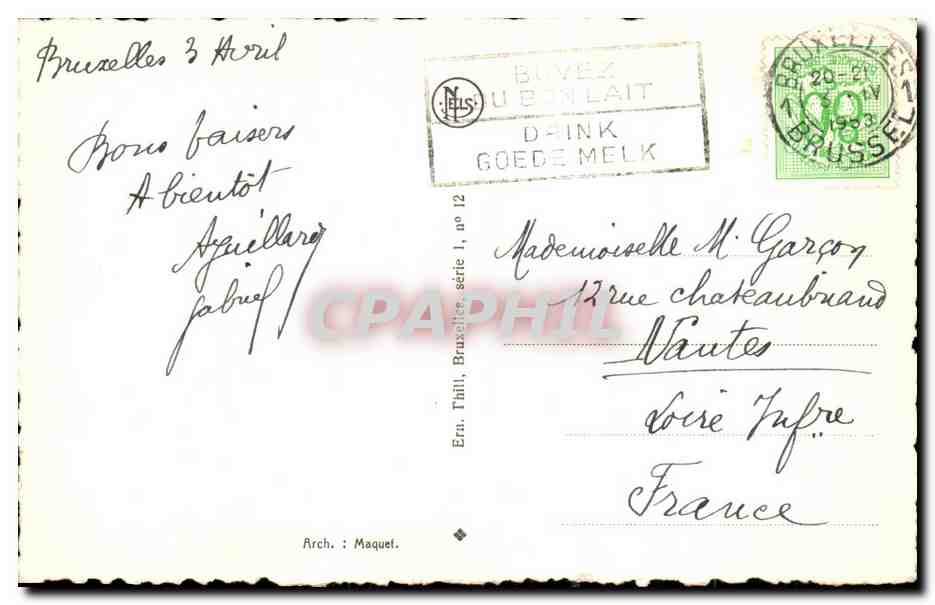 Bruxelles 3 Avril
Bons baisers
A bientôt
Aguillard
Gabriel
BUVEZ
DU BON LAIT
DRINK
GOEDE MELK
NELS
BRUXELLES 1
20-21
3 IV
1953
1 BRUSSEL
Ern. Thill, Bruxelles, série 1, nº 12
Mademoiselle M. Garçon
12 rue chateaubriand
Nantes
Loire Infre
France
Arch. : Maquet.
CPAPHIL